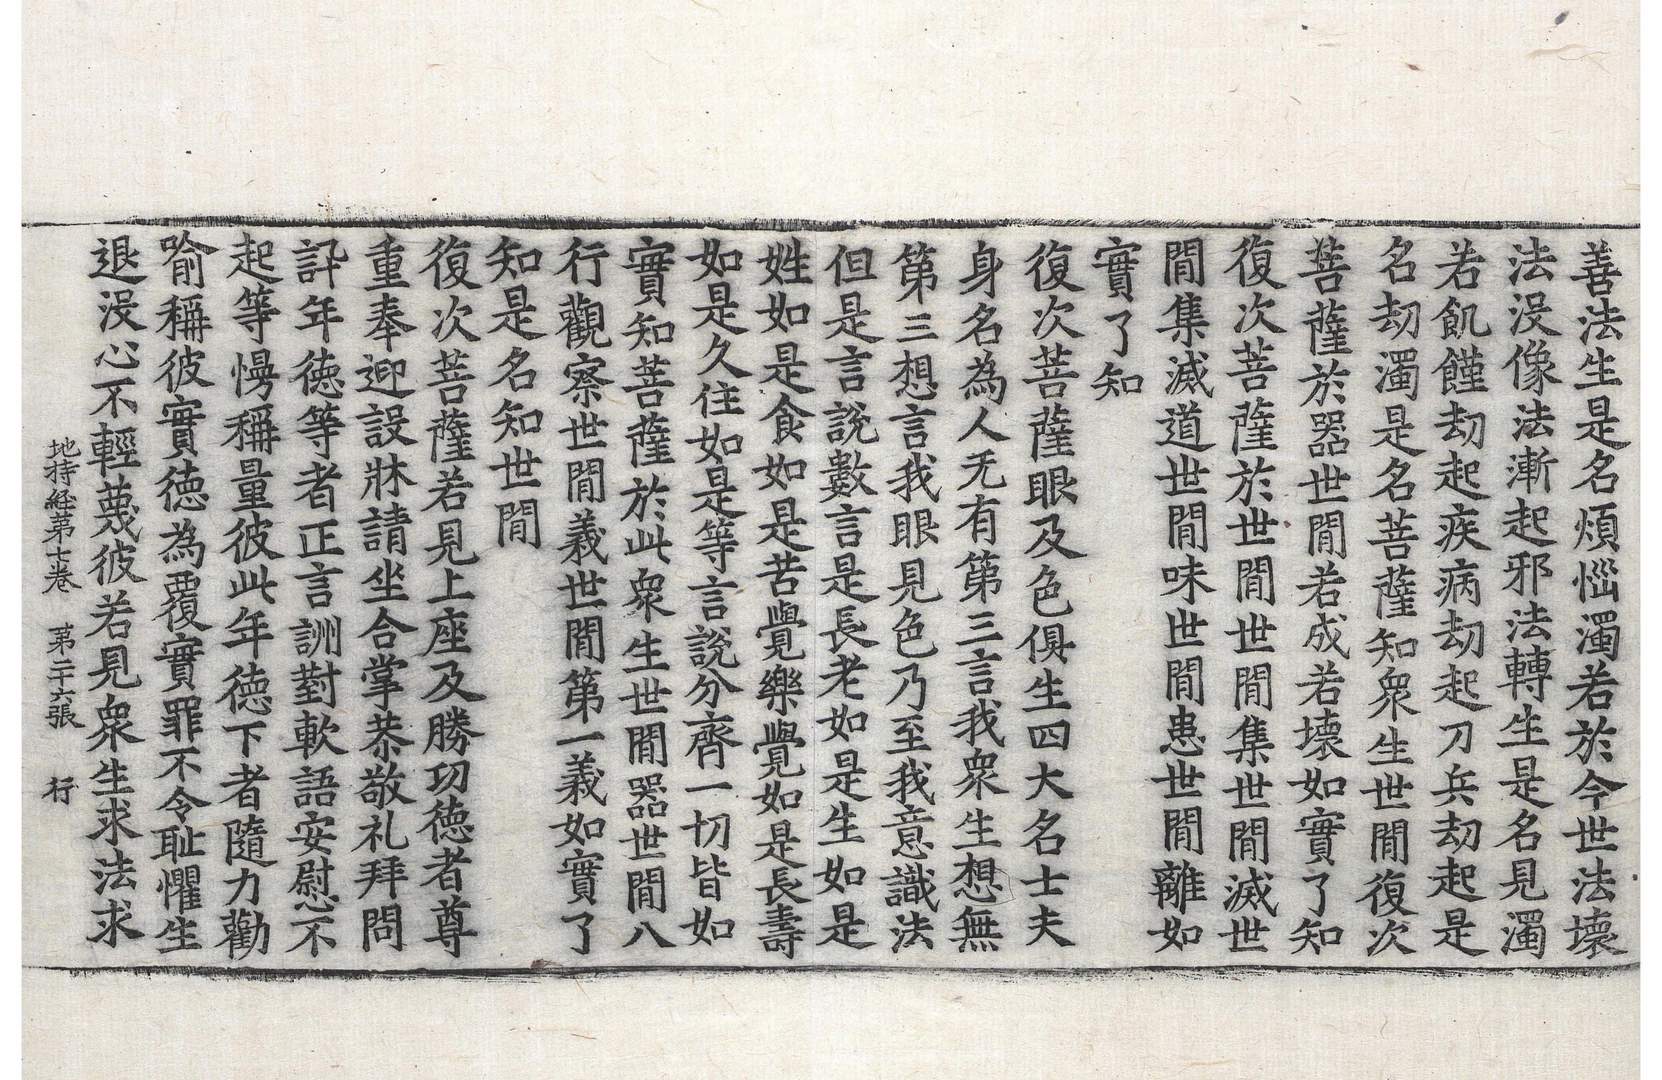 善法生是名煩惱濁若於今世法壞
法没像法漸起邪法轉生是名見濁
若飢饉劫起疾病劫起刀兵劫起是
名劫濁是名菩薩知衆生世閒復次
菩薩於器世閒若成若壞如實了知
復次菩薩於世閒世閒集世閒滅世
閒集滅道世閒味世閒患世閒離如
實了知
復次菩薩眼及色俱生四大名士夫
身名為人无有第三言我衆生想無
第三想言我眼見色乃至我意識法
但是言說數言是長老如是生如是
姓如是食如是苦覺樂覺如是長壽
如是久住如是等言說分齊一切皆如
實知菩薩於此衆生世閒器世閒八
行觀察世閒義世閒第一義如實了
知是名知世閒
復次菩薩若見上座及勝功德者尊
重奉迎設牀請坐合掌恭敬礼拜問
訊年德等者正言詶對軟語安慰不
起等慢稱量彼此年德下者隨力勸
喻稱彼實德為覆實罪不令耻懼生
退没心不輕蔑彼若見衆生求法求
地持経第七卷 第二十六張 行